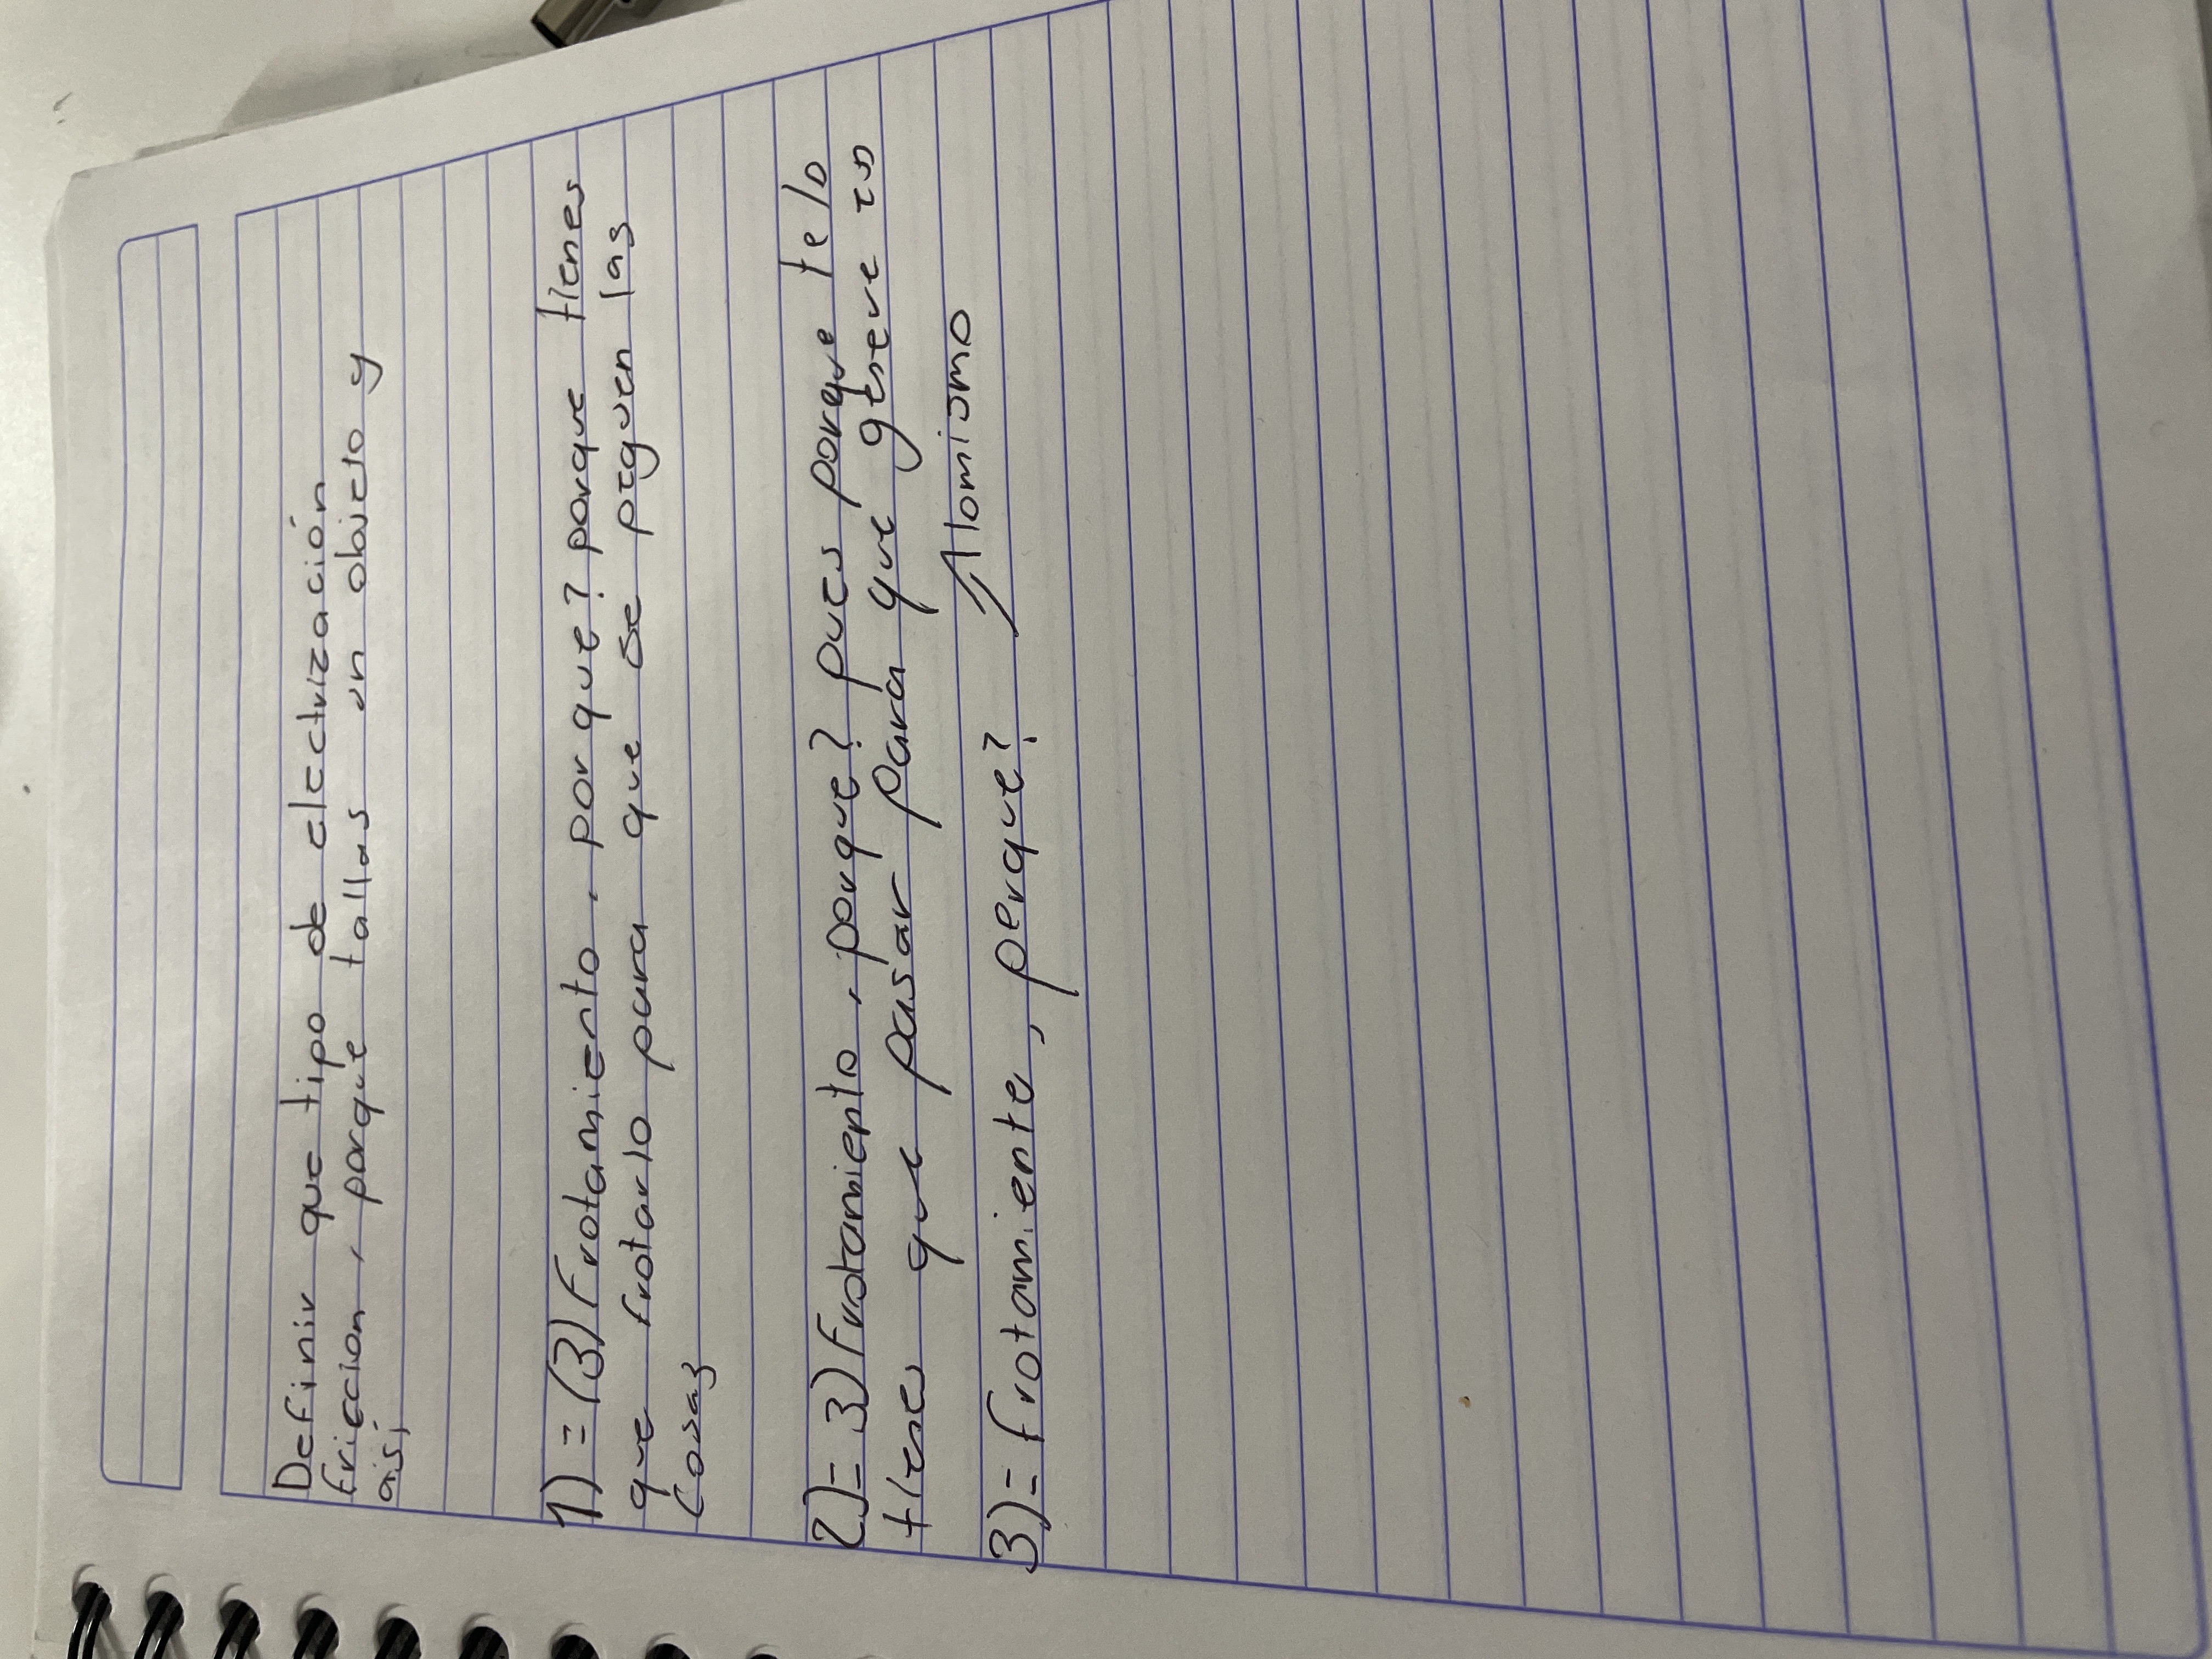 Definir que tipo de electrización
fricción, porque tallas un objeto y
asi,
1)=(3)Frotamiento, por que? porque tienes
que frotarlo para que se peguen las
cosas
2)=3)Frotamiento, porque? pues porque te lo
tienes que pasar para que genere es
3)= frotamiente, perque? lomismo